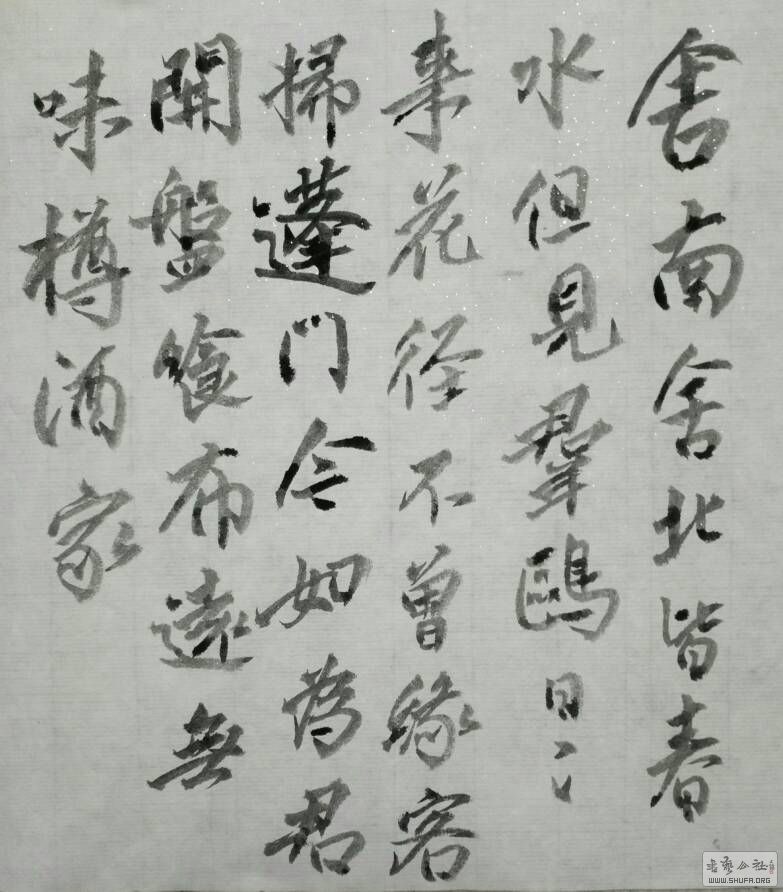 舍南舍北皆春
水但見羣鷗日〻
来花径不曾緣客
掃蓬門今如為君
開盤飧布遠無
味樽酒家
書藝公社
WWW.SHUFA.ORG